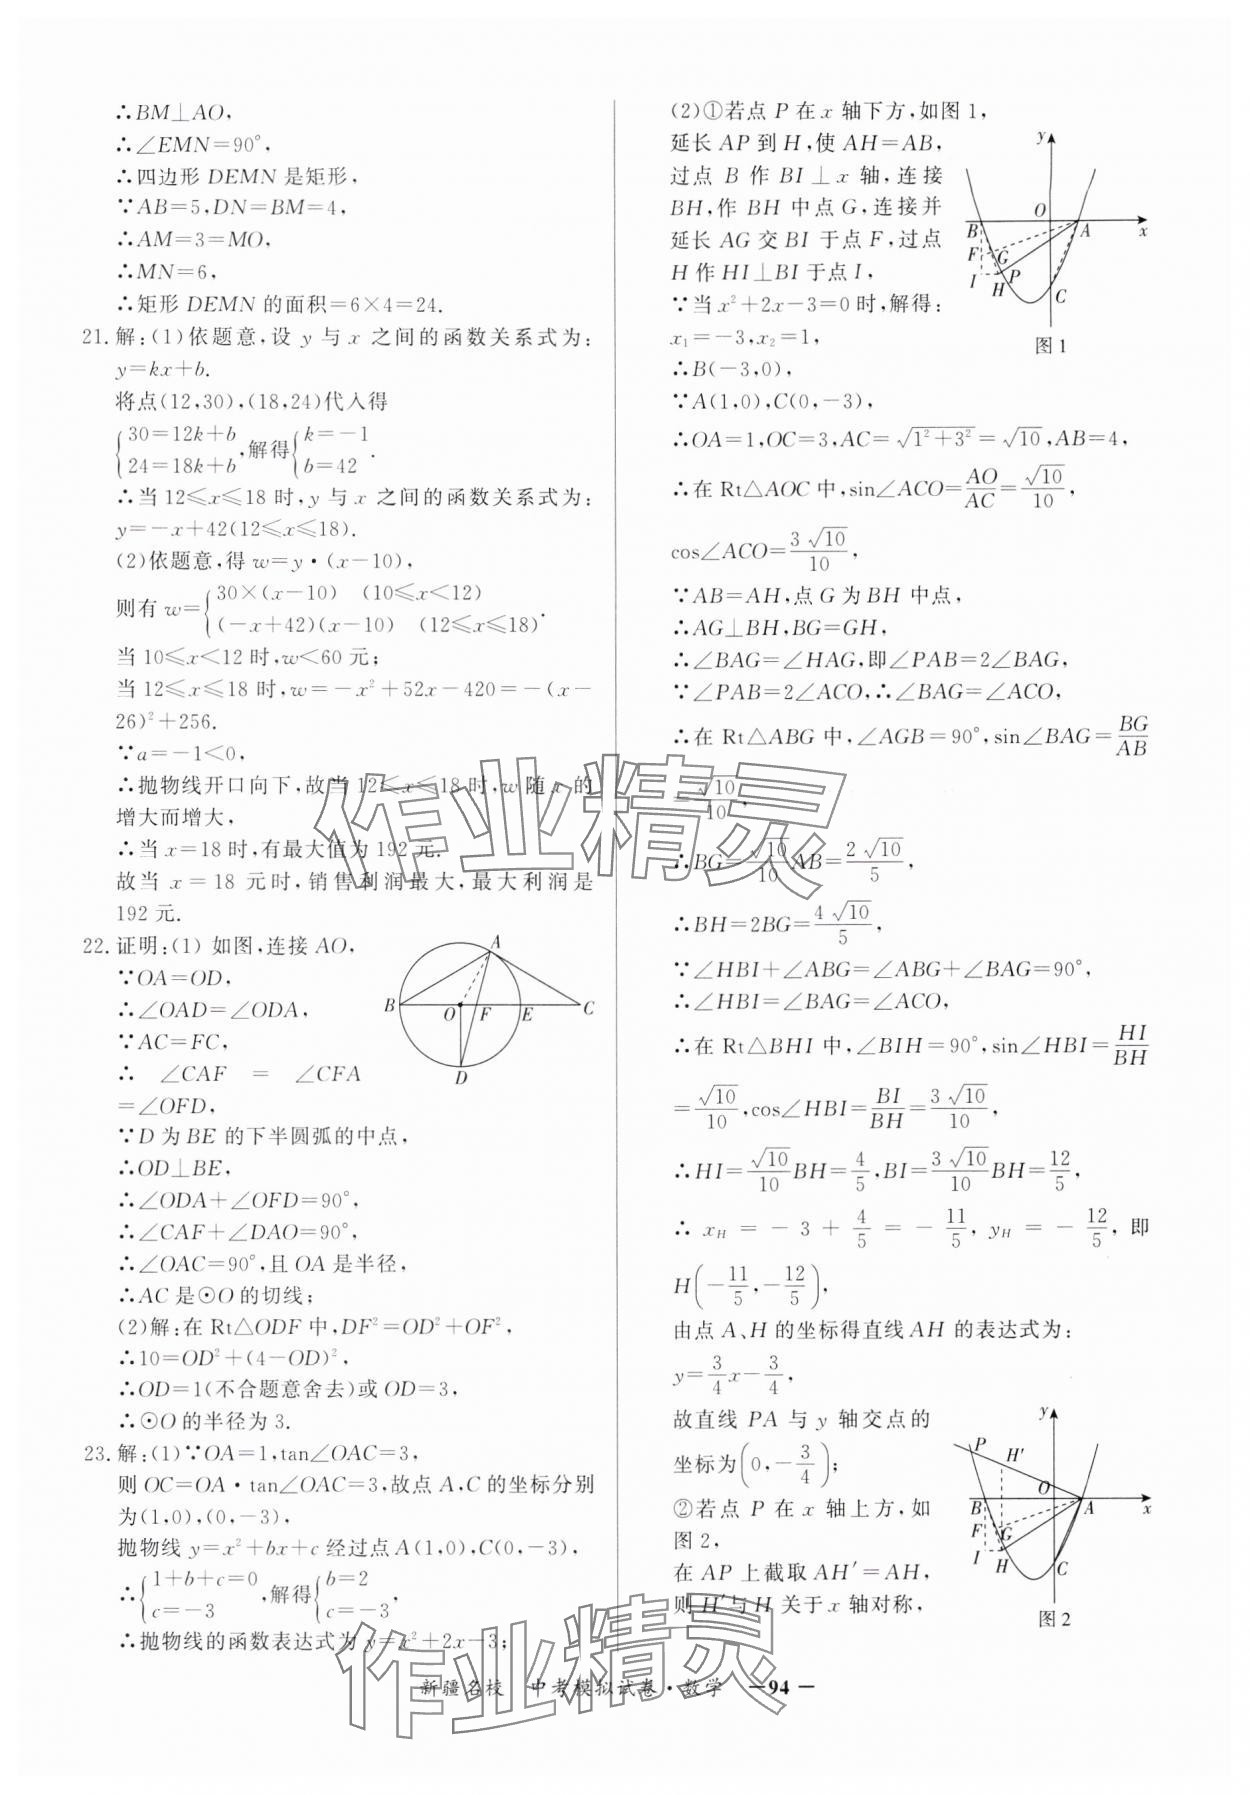 ∴BM⊥AO,
∴∠EMN=90°,
∴四边形 DEMN 是矩形,
∵AB=5,DN=BM=4,
∴AM=3=MO,
∴MN=6,
∴矩形 DEMN 的面积=6×4=24.
21.解:(1)依题意,设 y 与 x 之间的函数关系式为:
y=kx+b.
将点(12,30),(18,24)代入得
{30=12k+b
24=18k+b,解得{k=-1
b=42.
∴当 12≤x≤18 时,y 与 x 之间的函数关系式为:
y=-x+42(12≤x≤18).
(2)依题意,得 w=y·(x-10),
则有 w={30×(x-10) (10≤x<12)
(-x+42)(x-10) (12≤x≤18).
当 10≤x<12 时,w<60 元;
当 12≤x≤18 时,w=-x²+52x-420=-(x-
26)²+256.
∵a=-1<0,
∴抛物线开口向下,故当 12≤x≤18 时,w 随 x 的
增大而增大,
∴当 x=18 时,有最大值为 192 元.
故当 x=18 元时,销售利润最大,最大利润是
192 元.
22.证明:(1) 如图,连接 AO,
∵OA=OD,
∴∠OAD=∠ODA,
∵AC=FC,
∴ ∠CAF = ∠CFA
=∠OFD,
∵D 为 BE 的下半圆弧的中点,
∴OD⊥BE,
∴∠ODA+∠OFD=90°,
∴∠CAF+∠DAO=90°,
∴∠OAC=90°,且 OA 是半径,
∴AC 是⊙O 的切线;
(2)解:在 Rt△ODF 中,DF²=OD²+OF²,
∴10=OD²+(4-OD)²,
∴OD=1(不合题意舍去)或 OD=3,
∴⊙O 的半径为 3.
A
B O F E C
D
23.解:(1)∵OA=1,tan∠OAC=3,
则 OC=OA·tan∠OAC=3,故点 A,C 的坐标分别
为(1,0),(0,-3),
抛物线 y=x²+bx+c 经过点 A(1,0),C(0,-3),
∴{1+b+c=0
c=-3,解得{b=2
c=-3,
∴抛物线的函数表达式为 y=x²+2x-3;
(2)①若点 P 在 x 轴下方,如图 1,
延长 AP 到 H,使 AH=AB,
过点 B 作 BI⊥x 轴,连接
BH,作 BH 中点 G,连接并
延长 AG 交 BI 于点 F,过点
H 作 HI⊥BI 于点 I,
∵当 x²+2x-3=0 时,解得:
x₁=-3,x₂=1,
y
O
B A x
F G
I H P
C
图 1
∴B(-3,0),
∵A(1,0),C(0,-3),
∴OA=1,OC=3,AC=√(1²+3²)=√10,AB=4,
∴在 Rt△AOC 中,sin∠ACO=AO/AC=√10/10,
cos∠ACO=3√10/10,
∵AB=AH,点 G 为 BH 中点,
∴AG⊥BH,BG=GH,
∴∠BAG=∠HAG,即∠PAB=2∠BAG,
∵∠PAB=2∠ACO,∴∠BAG=∠ACO,
∴在 Rt△ABG 中,∠AGB=90°,sin∠BAG=BG/AB
=√10/10,
∴BG=√10/10 AB=2√10/5,
∴BH=2BG=4√10/5,
∵∠HBI+∠ABG=∠ABG+∠BAG=90°,
∴∠HBI=∠BAG=∠ACO,
∴在 Rt△BHI 中,∠BIH=90°,sin∠HBI=HI/BH
=√10/10,cos∠HBI=BI/BH=3√10/10,
∴HI=√10/10 BH=4/5,BI=3√10/10 BH=12/5,
∴ x_H = -3 + 4/5 = -11/5, y_H = -12/5, 即
H(-11/5,-12/5),
由点 A、H 的坐标得直线 AH 的表达式为:
y=3/4 x-3/4,
故直线 PA 与 y 轴交点的
坐标为(0,-3/4);
②若点 P 在 x 轴上方,如
图 2,
在 AP 上截取 AH′=AH,
则 H′与 H 关于 x 轴对称,
y
P H′
O
B A x
F G
I H
C
图 2
新疆名校 中考模拟试卷·数学 —94—
作业精灵
作业精灵